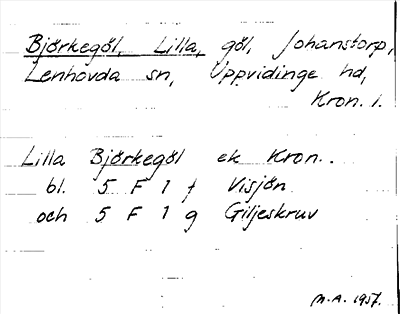 Björkegöl, Lilla, göl, Johanstorp,
Lenhovda sn, Uppvidinge hd,
Kron. l.
Lilla Björkegöl ek Kron..
bl. 5 F 1 f Visjön
och 5 F 1 g Giljeskruv
M.A. 1957.